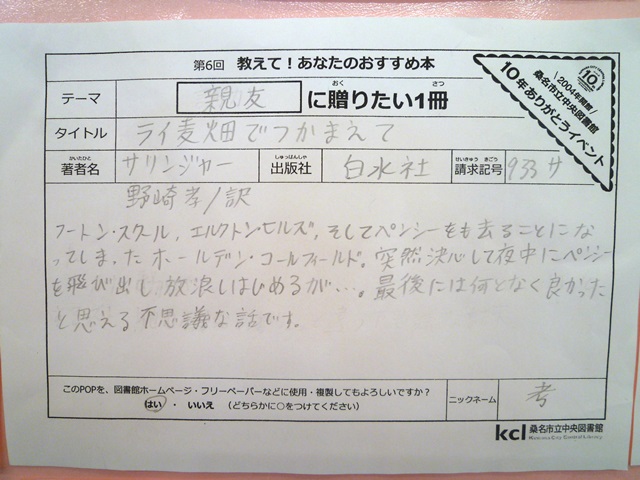 第6回 教えて!あなたのおすすめ本
\2004年開館/
桑名市立中央図書館
10年ありがとうイベント
テーマ 親友 に贈りたい1冊
おく さつ
タイトル ライ麦畑でつかまえて
かいたひと しゅっぱんしゃ せいきゅう きごう
著者名 サリンジャー 出版社 白水社 請求記号 933サ
野崎孝/訳
フートン・スクール、エルクトン・ヒルズ、そしてペンシーをも去ることにな
ってしまった ホールデン・コールフィールド。突然決心して夜中にペンシー
を飛び出し、放浪しはじめるが…。最後には何となく良かった
と思える不思議な話です。
このPOPを、図書館ホームページ・フリーペーパーなどに使用・複製してもよろしいですか?
はい ・ いいえ (どちらかに○をつけてください)
ニックネーム 考
kcl 桑名市立中央図書館
Kuwana City Central Library